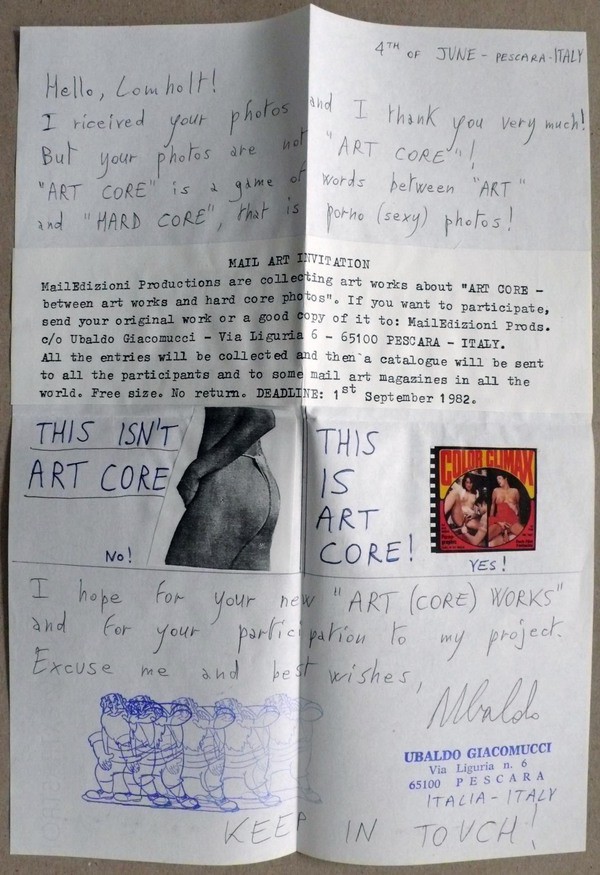 4TH OF JUNE - PESCARA-ITALY
Hello, Lomholt!
I riceived your photos and I thank you very much!
But your photos are not "ART CORE"!
"ART CORE" is a game of words between "ART"
and "HARD CORE", that is porno (sexy) photos!
MAIL ART INVITATION
MailEdizioni Productions are collecting art works about "ART CORE -
between art works and hard core photos". If you want to participate,
send your original work or a good copy of it to: MailEdizioni Prods.
c/o Ubaldo Giacomucci - Via Liguria 6 - 65100 PESCARA - ITALY.
All the entries will be collected and then a catalogue will be sent
to all the participants and to some mail art magazines in all the
world. Free size. No return. DEADLINE: 1st September 1982.
THIS ISN'T
ART CORE
NO!
THIS
IS
ART
CORE!
COLOR CLIMAX
YES!
I hope for your new "ART (CORE) WORKS"
and for your participation to my project.
Excuse me and best wishes,
Ubaldo
UBALDO GIACOMUCCI
Via Liguria n. 6
65100 PESCARA
ITALIA - ITALY
KEEP IN TOUCH!